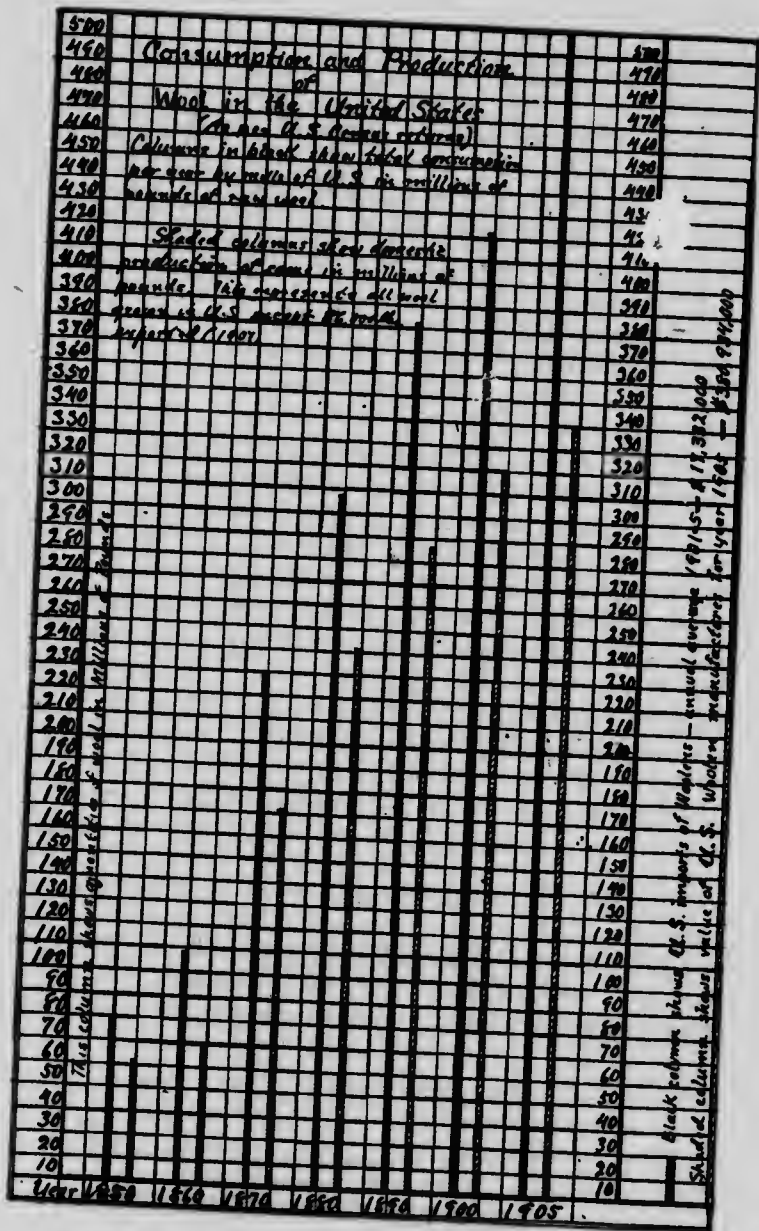 Consumption and Production
of
Wool in the United States
(As per U.S. Census returns)
Columns in black show total consumption
per year by mills of U.S. in millions of
pounds of raw wool.
Shaded columns show domestic
production of same in millions of
pounds. This represents all wool
grown in U.S. except
exported (1907)
500
490
480
470
460
450
440
430
420
410
400
390
380
370
360
350
340
330
320
310
300
290
280
270
260
250
240
230
220
210
200
190
180
170
160
150
140
130
120
110
100
90
80
70
60
50
40
30
20
10
This column shows quantities of wool in Millions of Pounds
Year 1850 1860 1870 1880 1890 1900 1905
500
490
480
470
460
450
440
400
390
380
370
360
350
340
330
320
310
300
290
280
270
260
250
240
230
220
210
200
190
180
170
160
150
140
130
120
110
100
90
80
70
60
50
40
30
20
10
Black column shows U.S. imports of Woolens - annual average 1901-5 - $17,322,000
Shaded column shows value of U.S. woolen manufactures for year 1905 - $380,934,000